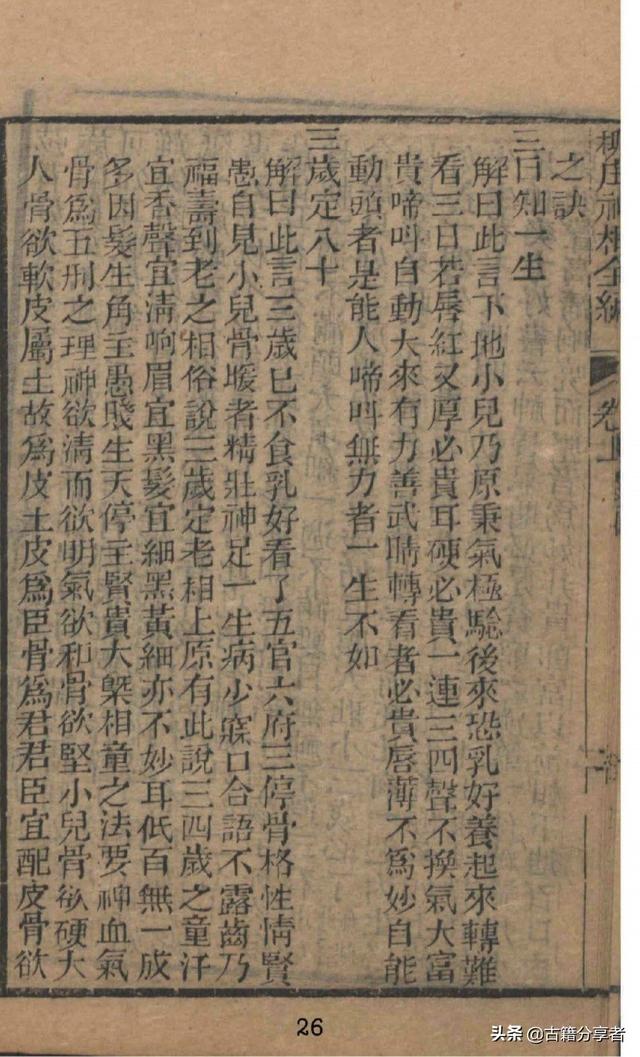 柳庄神相全編 卷上
之訣
三日知一生
解曰此言下地小兒乃原秉氣極驗後來恐乳好養起來轉難
看三日若唇紅又厚必貴耳硬必貴一連三四聲不換氣大富
貴啼叫自動大來有力善武睛轉看者必貴唇薄不爲妙自能
動頭者是能人啼叫無力者一生不如
三歲定八十
解曰此言三歲已不食乳好看了五官六府三停骨格性情賢
愚自見小兒骨堅者精壯神足一生病少寐口合語不露齒乃
福壽到老之相俗說三歲定老相上原有此說三四歲之童汗
宜香聲宜淸响眉宜黑髮宜細黑黃細亦不妙耳低百無一成
多因髮生角主愚賤生天停主賢貴大槩相童之法要神血氣
骨爲五刑之理神欲淸而欲明氣欲和骨欲堅小兒骨欲硬大
人骨欲軟皮屬土故爲皮土皮爲臣骨爲君君臣宜配皮骨欲
26
头条 @古籍分享者